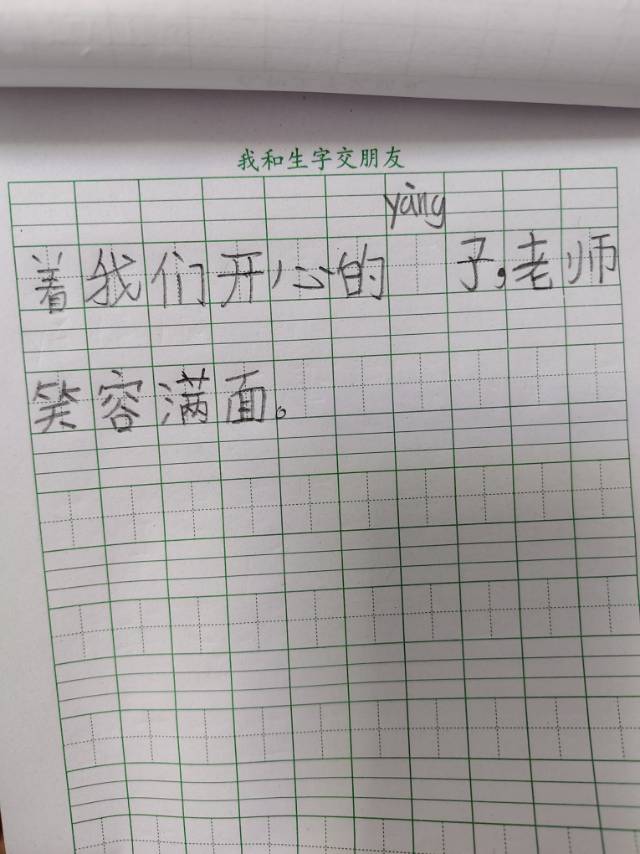 我和生字交朋友
yàng
着我们开心的 子,老师
笑容满面。